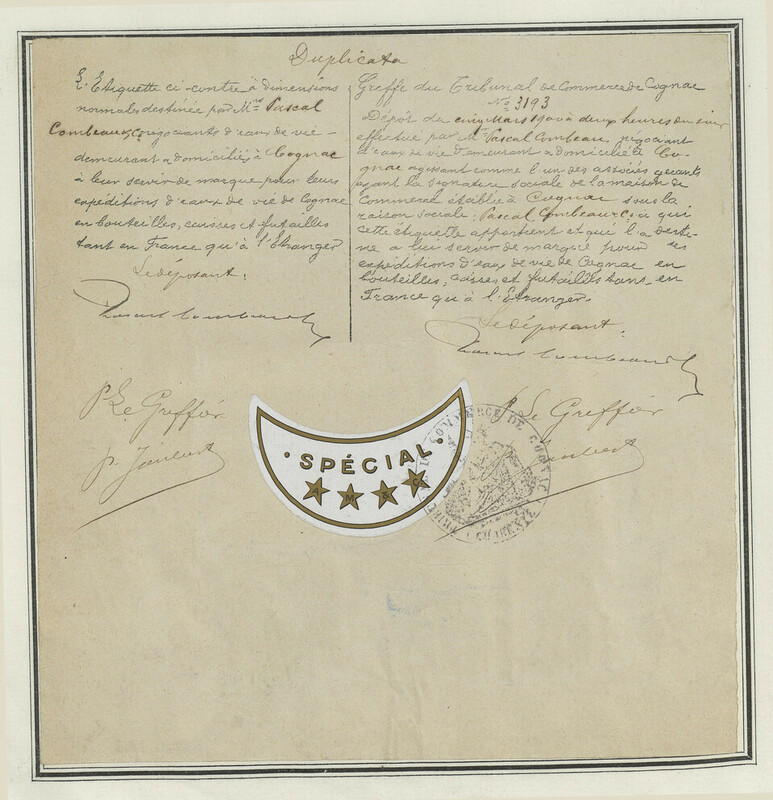 Duplicata
L'Etiquette ci-contre à dimensions
normales destinée par Mrs Pascal
Combeau & Co négociants d'eaux de vie
demeurant & domiciliés à Cognac
à leur servir de marque pour leurs
expéditions d'eaux de vie de Cognac
en bouteilles, caisses et futailles
tant en France qu'à l'Etranger
Le déposant.
Pascal Combeau & Co
P. Le Greffier
p. Jaulbert
Greffe du Tribunal de Commerce de Cognac
No 3193
Dépôt du cinq Mars 1900 à deux heures du soir
effectué par Mr Pascal Combeau, négociant
d'eaux de vie demeurant & domicilié à Co-
gnac agissant comme l'un des associés gérants
ayant la signature sociale de la maison de
Commerce établie à Cognac sous la
raison sociale: Pascal Combeau & Co à qui
cette étiquette appartient et qui l'a desti-
née à lui servir de marque pour ses
expéditions d'eaux de vie de Cognac en
bouteilles, caisses et futailles tant en
France qu'à l'Etranger.
Le déposant.
Pascal Combeau & Co
P. Le Greffier
SPÉCIAL
A M & C
COMMERCE DE COGNAC